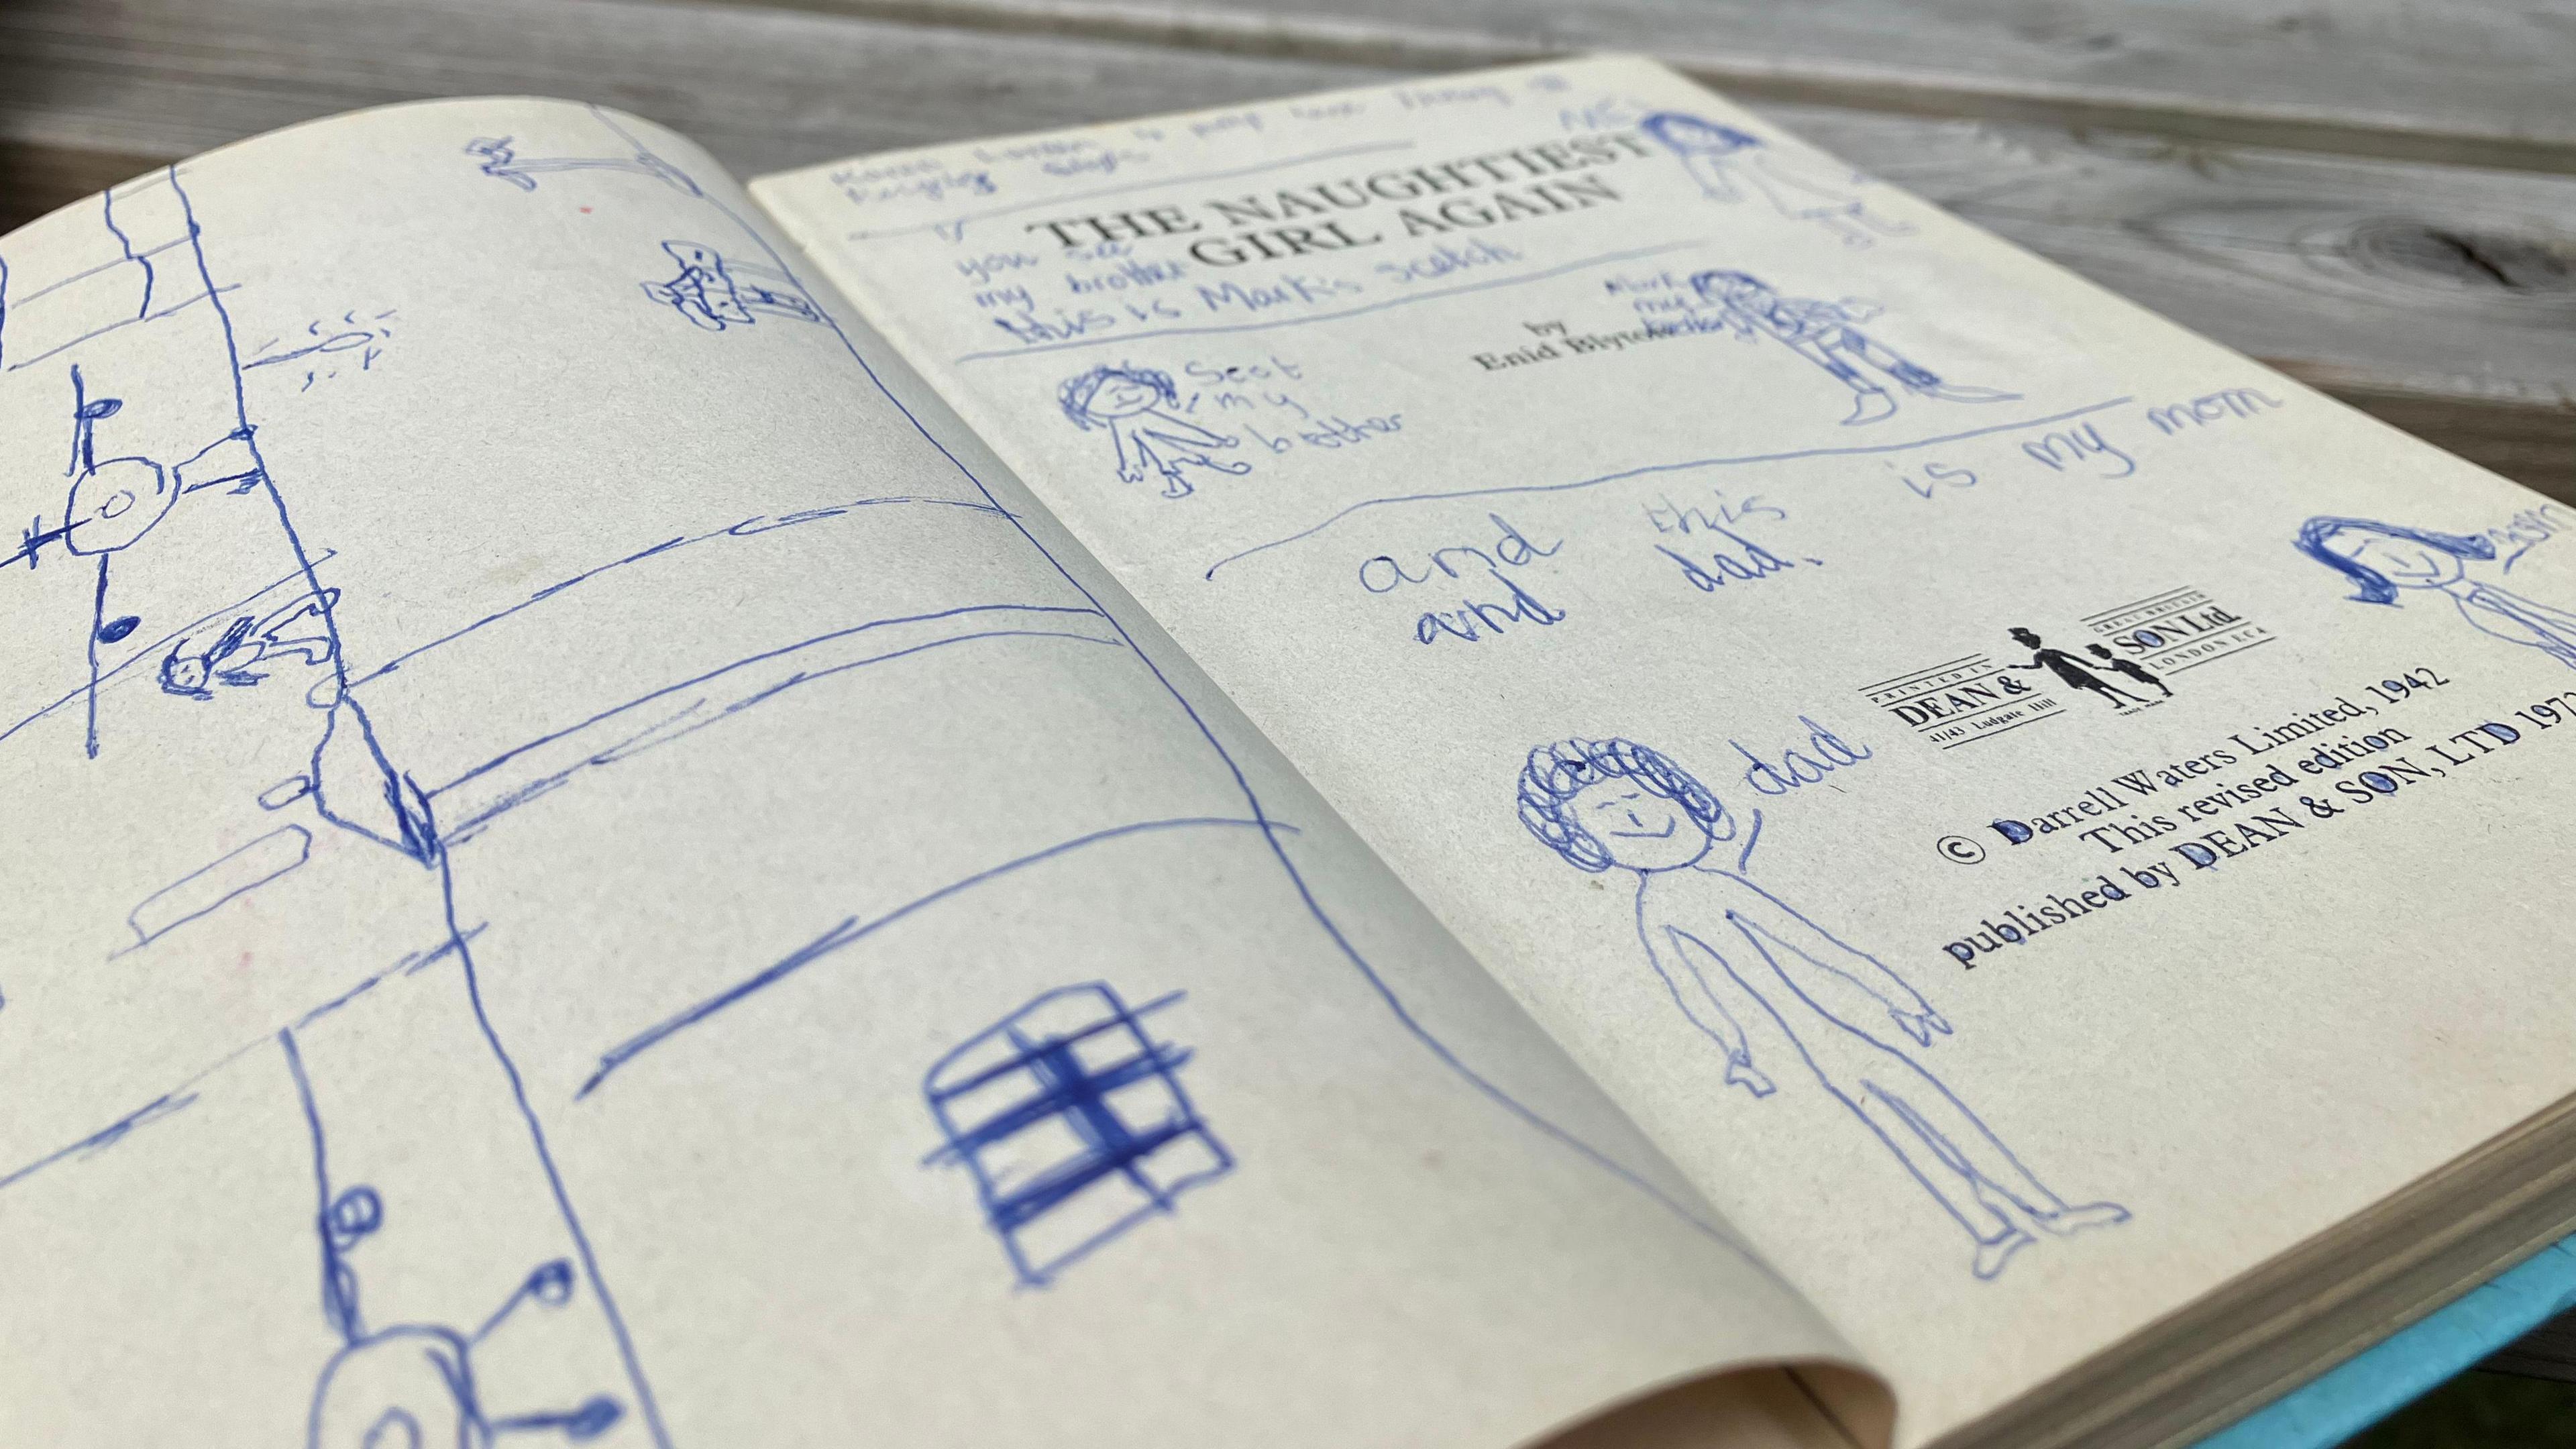 ME
THE NAUGHTIEST
GIRL AGAIN
you see
my brother
this is Mark's scetch
Mark
my
by
Enid Blyton
my
brother
and this is my mom
and dad.
mom
PRINTED IN
GREAT BRITAIN
DEAN &
SON Ltd.
41/43 Ludgate Hill
LONDON EC4
dad
© Darrell Waters Limited, 1942
This revised edition
published by DEAN & SON, LTD 197